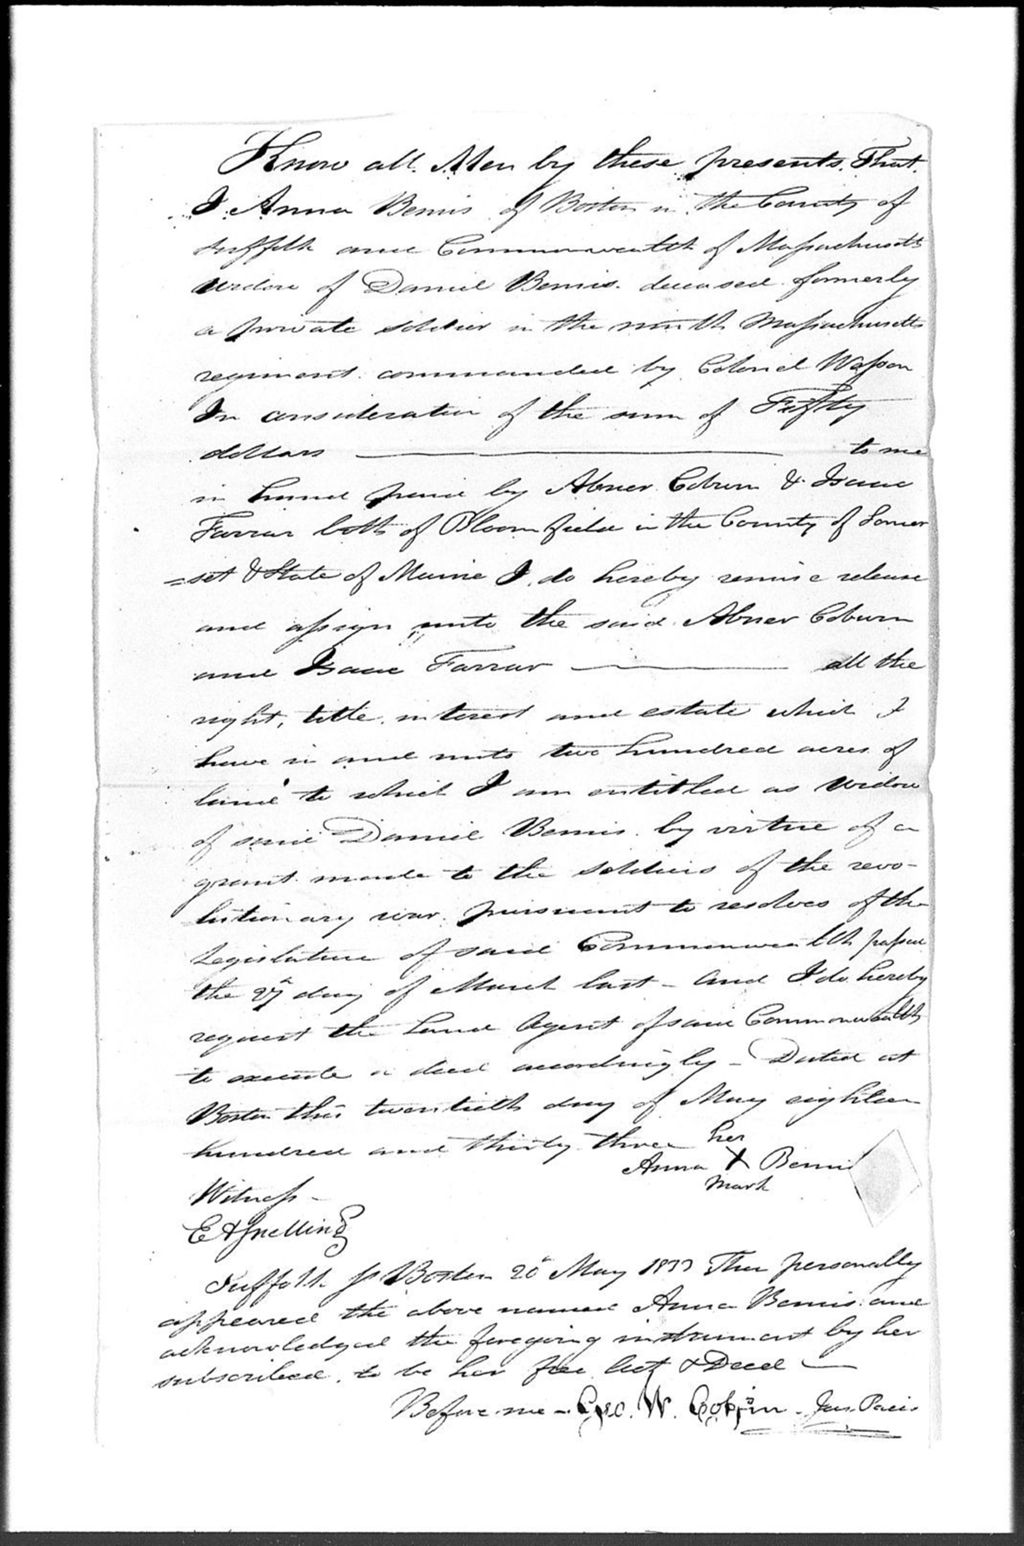 Know all Men by these presents. That
I Anna Bemis of Boston in the County of
Suffolk and Commonwealth of Massachusetts
Widow of Daniel Bemis. deceased formerly
a private soldier in the ninth Massachusetts
regiment commanded by Colonel Wesson
In consideration of the sum of Fifty
dollars ——— to me
in hand paid by Abner Coburn & Isaac
Farrar both of Bloomfield in the County of Somer
=set & State of Maine I do hereby remise release
and assign unto the said Abner Coburn
and Isaac Farrar ——— all the
right, title interest and estate which I
have in and unto two hundred acres of
land to which I am entitled as Widow
of said Daniel Bemis by virtue of a
grant made to the soldiers of the revo-
lutionary war. pursuant to resolves of the
Legislature of said Commonwealth passed
the 27 day of March last - And I do hereby
request the Land Agent of said Commonwealth
to execute a deed accordingly - Dated at
Boston this twentieth day of May eighteen
hundred and thirty three
her
Anna X Bemis
Mark
Witness -
E A Snelling
Suffolk ss Boston 20 May 1833 Then personally
appeared the above named Anna Bemis and
acknowledged the foregoing instrument by her
subscribed. to be her free Act & Deed —
Before me - Geo. W. Jus. Pacis